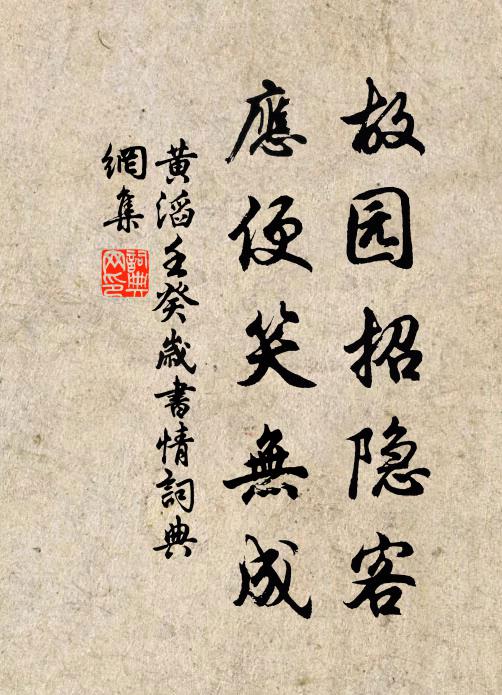 故园招隐客
應便笑無成
黄滔壬癸歲書情詞典
網集
詞典
网印